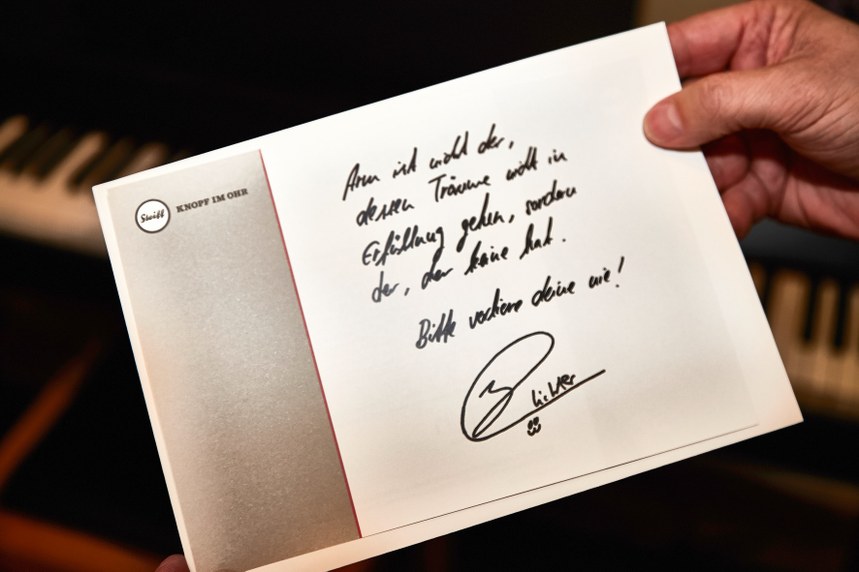 Steiff
KNOPF IM OHR
Arm ist nicht der,
dessen Träume nicht in
Erfüllung gehen, sondern
der, der keine hat.
Bitte verliere deine nie!